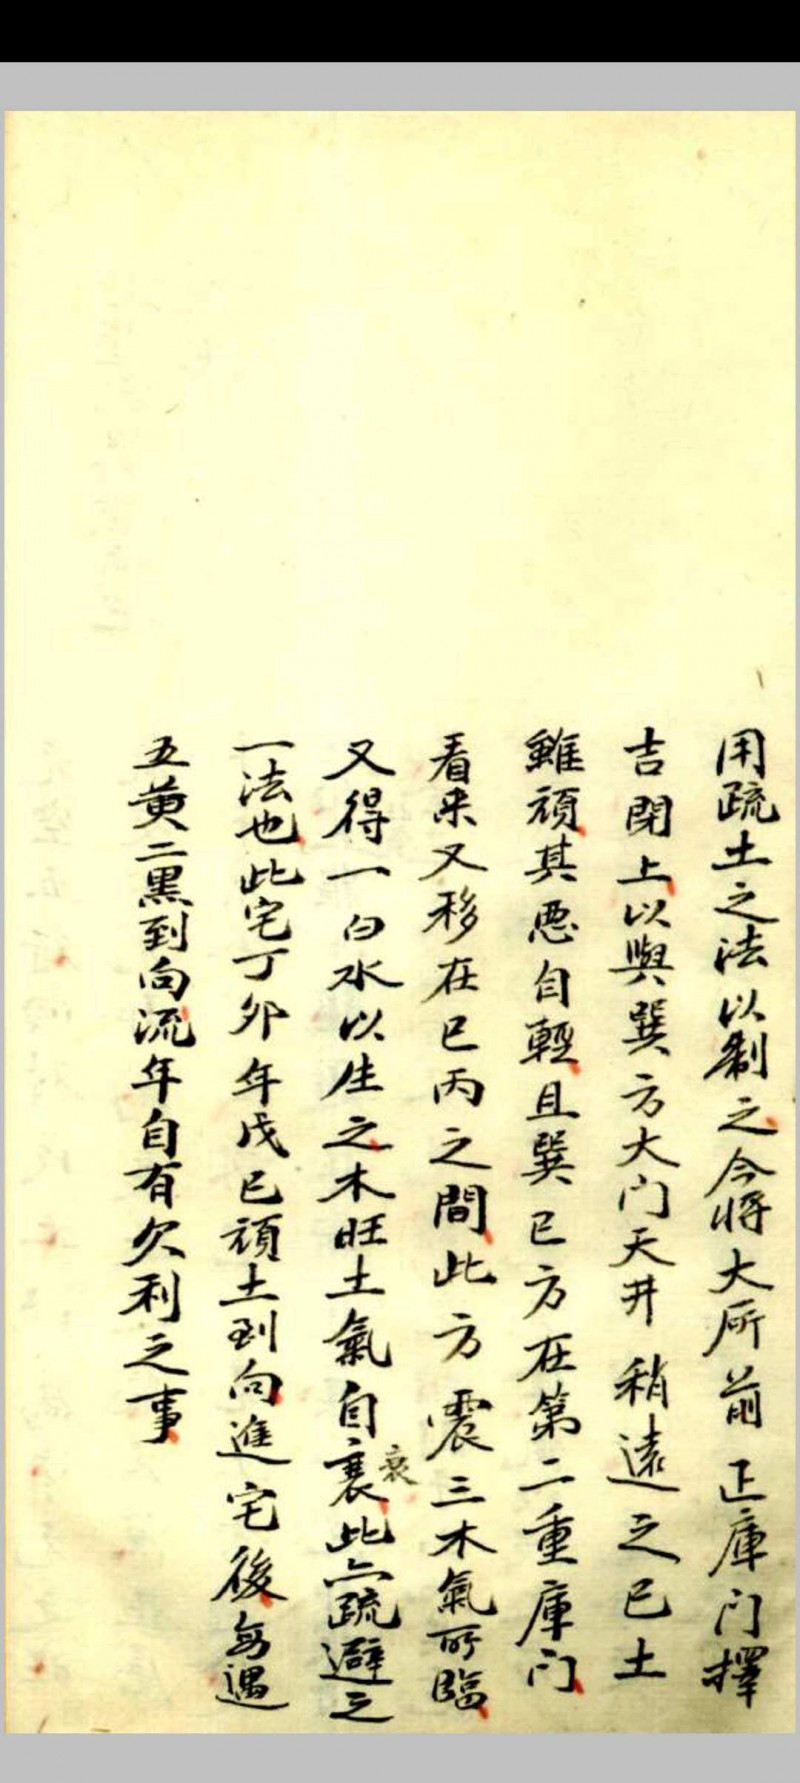 用疏土之法以制之今將大所前正庫门擇
吉閉上以與巽方大门天井稍遠之巳土
雖頑其惡自輕且巽巳方在第二重庫门
看来又移在巳丙之間此方震三木氣所臨
又得一白水以生之木旺土氣自衰此亦疏避之
衰
一法也此宅丁卯年戊巳頑土到向進宅後每遇
五黄二黑到向流年自有欠利之事